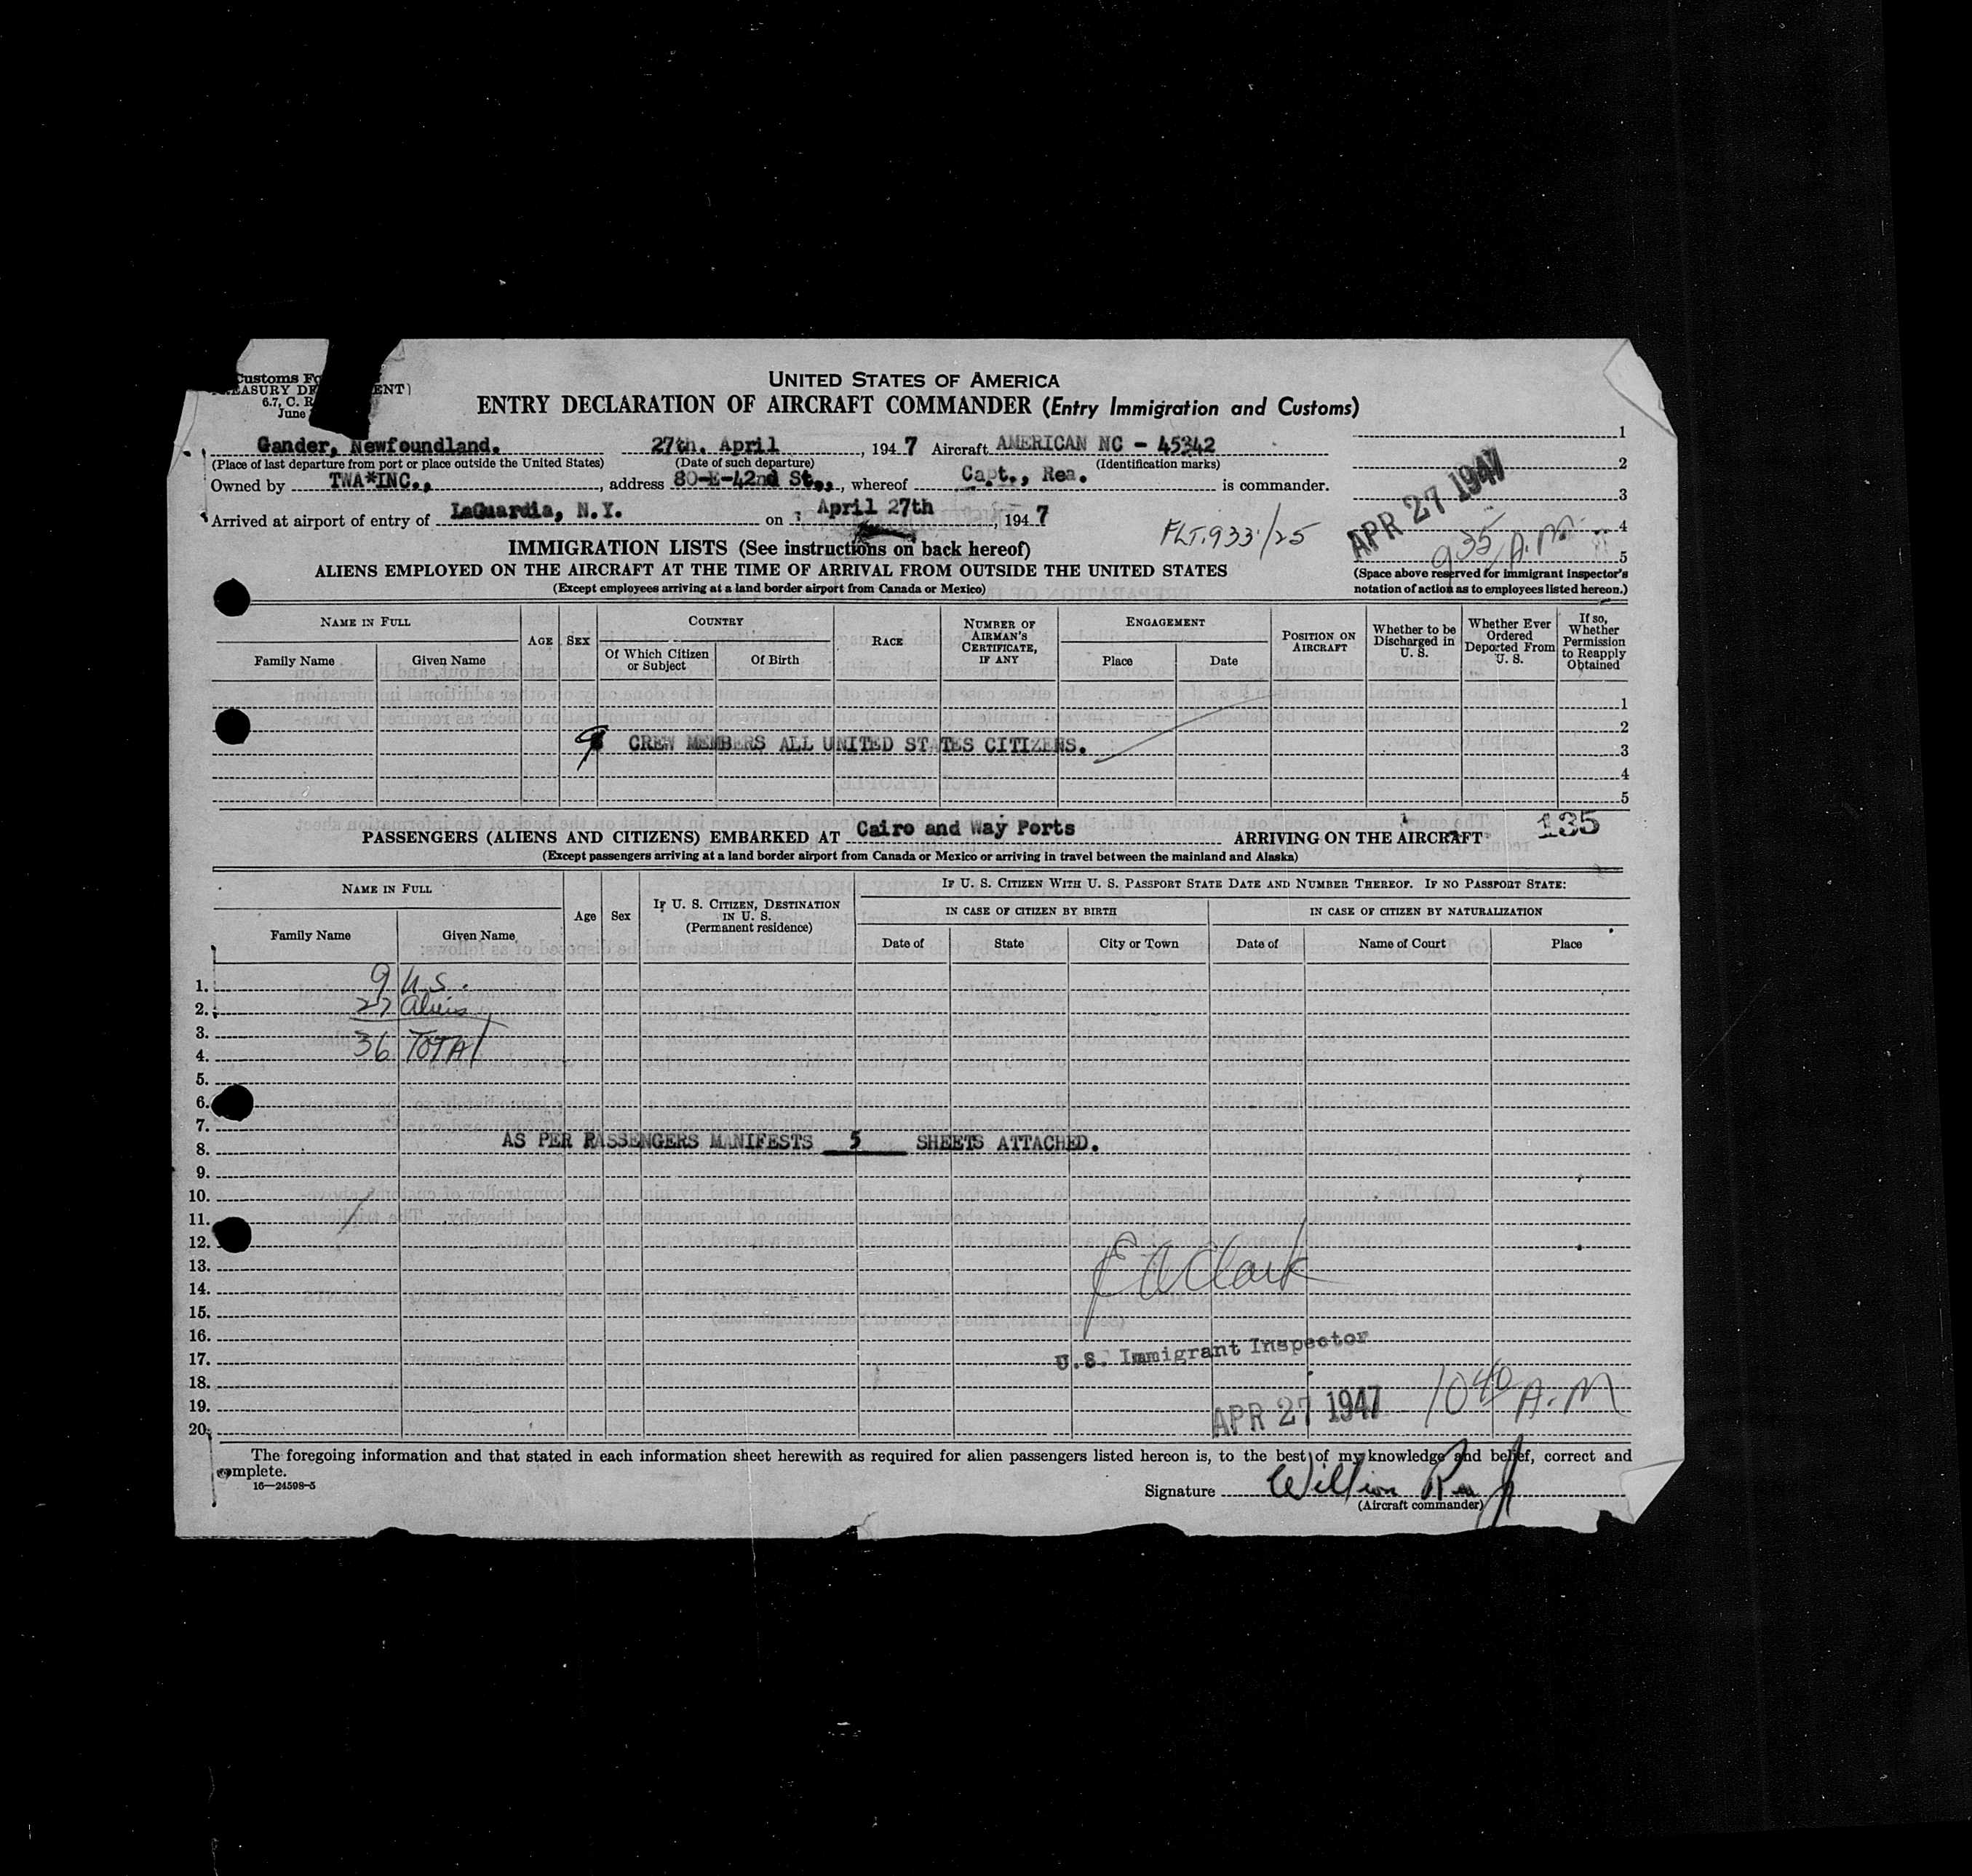 Customs Fo
EASURY DE ENT)
6.7, C. R
June
UNITED STATES OF AMERICA
ENTRY DECLARATION OF AIRCRAFT COMMANDER (Entry Immigration and Customs)
Gander, Newfoundland. 27th. April, 1947 Aircraft AMERICAN NC - 45342
(Place of last departure from port or place outside the United States) (Date of such departure) (Identification marks)
Owned by TWA*INC., address 80-E-42nd St., whereof Capt., Rea. is commander.
Arrived at airport of entry of LaGuardia, N.Y. on April 27th, 1947
FLT.933/25
1
2
3
4
5
APR 27 1947
9 35 A.M.
(Space above reserved for immigrant inspector's
notation of action as to employees listed hereon.)
IMMIGRATION LISTS (See instructions on back hereof)
ALIENS EMPLOYED ON THE AIRCRAFT AT THE TIME OF ARRIVAL FROM OUTSIDE THE UNITED STATES
(Except employees arriving at a land border airport from Canada or Mexico)
NAME IN FULL
Family Name Given Name
AGE SEX
COUNTRY
Of Which Citizen or Subject Of Birth
RACE
NUMBER OF AIRMAN'S CERTIFICATE, IF ANY
ENGAGEMENT
Place Date
POSITION ON AIRCRAFT
Whether to be Discharged in U. S.
Whether Ever Ordered Deported From U. S.
If so, Whether Permission to Reapply Obtained
1
2
9 CREW MEMBERS ALL UNITED STATES CITIZENS. 3
4
5
PASSENGERS (ALIENS AND CITIZENS) EMBARKED AT Cairo and Way Ports ARRIVING ON THE AIRCRAFT 135
(Except passengers arriving at a land border airport from Canada or Mexico or arriving in travel between the mainland and Alaska)
NAME IN FULL
Family Name Given Name
Age Sex
IF U. S. CITIZEN, DESTINATION IN U. S.
(Permanent residence)
IF U. S. CITIZEN WITH U. S. PASSPORT STATE DATE AND NUMBER THEREOF. IF NO PASSPORT STATE:
IN CASE OF CITIZEN BY BIRTH IN CASE OF CITIZEN BY NATURALIZATION
Date of State City or Town Date of Name of Court Place
1. 9 U.S.
2. 27 Aliens
3.
4. 36 TOTAL
5.
6.
7.
8. AS PER PASSENGERS MANIFESTS 5 SHEETS ATTACHED.
9.
10.
11.
12.
13. E A Clark
14.
15.
16.
17. U.S. Immigrant Inspector
18.
19. APR 27 1947 10 40 A.M
20.
The foregoing information and that stated in each information sheet herewith as required for alien passengers listed hereon is, to the best of my knowledge and belief, correct and
complete.
16—24598-5
Signature William Rea Jr
(Aircraft commander)